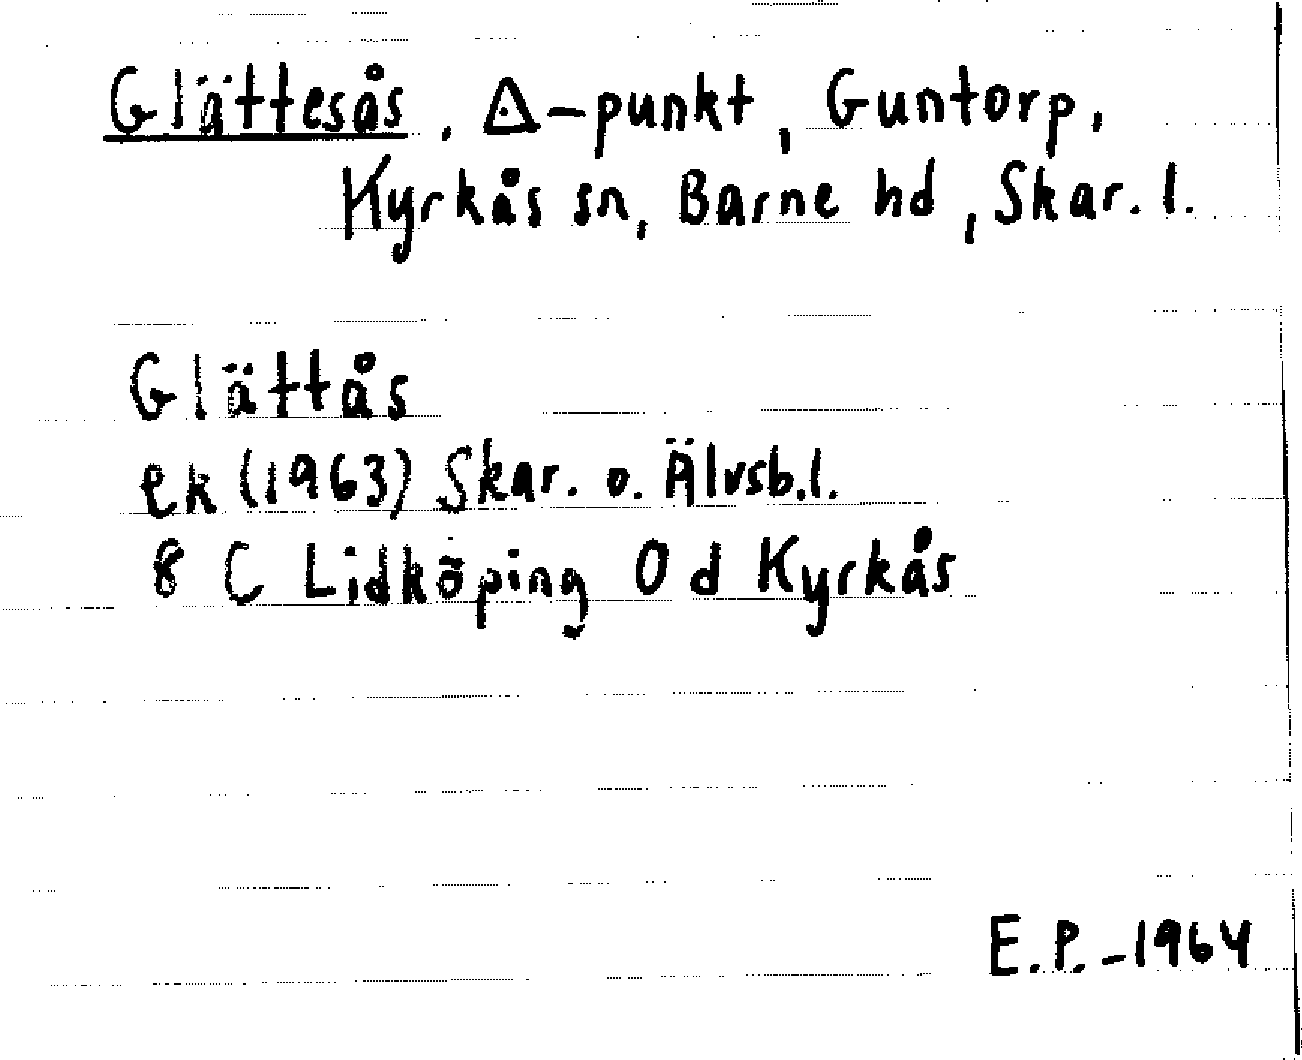 Glättesås, △-punkt, Guntorp,
Kyrkås sn, Barne hd, Skar. l.
Glättås
ek (1963) Skar. o. Älvsb.l.
8 C Lidköping 0 d Kyrkås
E.P. -1964